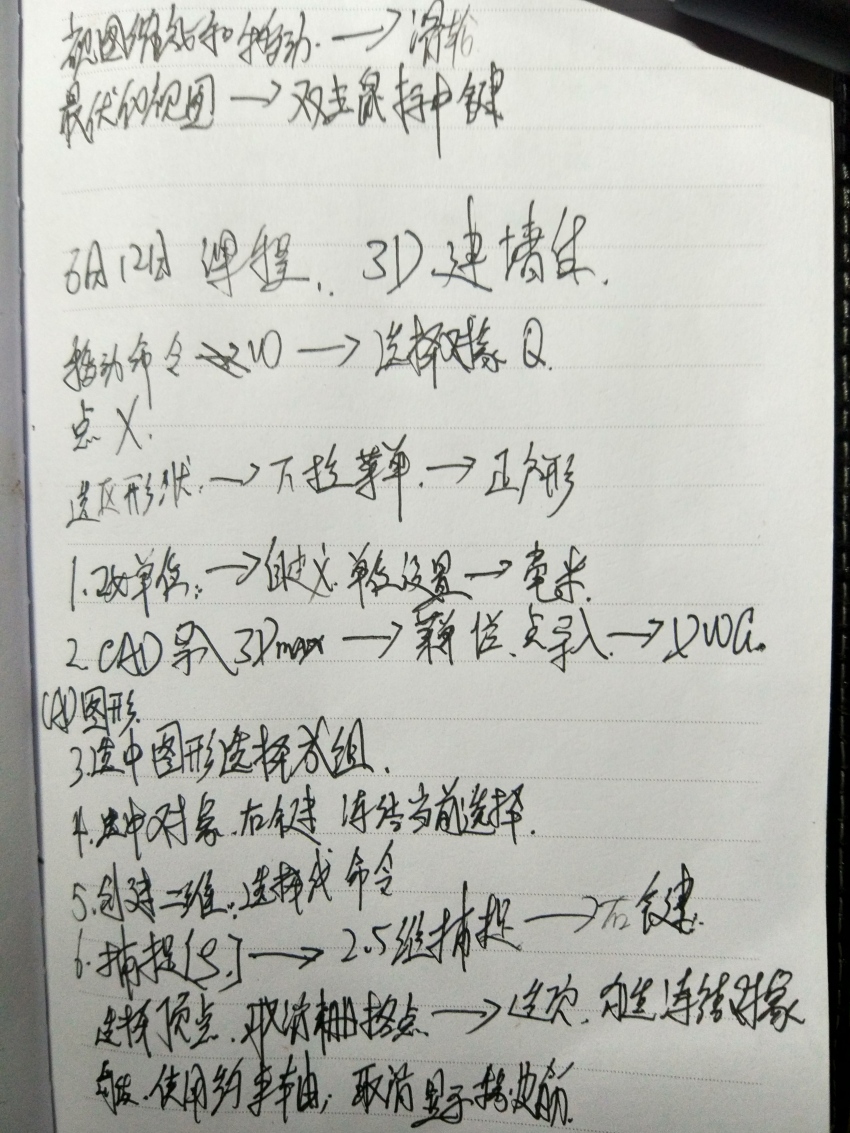 视图缩放和移动.→滑轮
最优的视图→双击鼠标中键
6月12日 课程.. 3D建墙体.
移动命令 W→选择对象Q.
点X.
选区形状.→下拉菜单.→正方形
1.改单位:→自定义.单位设置→毫米.
2.CAD导入3Dmax→菜单栏.点导入.→DWG.
CAD图形.
3.选中图形选择成组.
4.选中对象.右键 冻结当前选择.
5.创建二维:选择线命令
6.捕捉[S.]→2.5维捕捉→右键.
选择顶点.取消栅格点→选项.勾选冻结对象
使用约束轴;取消显示橡皮筋.